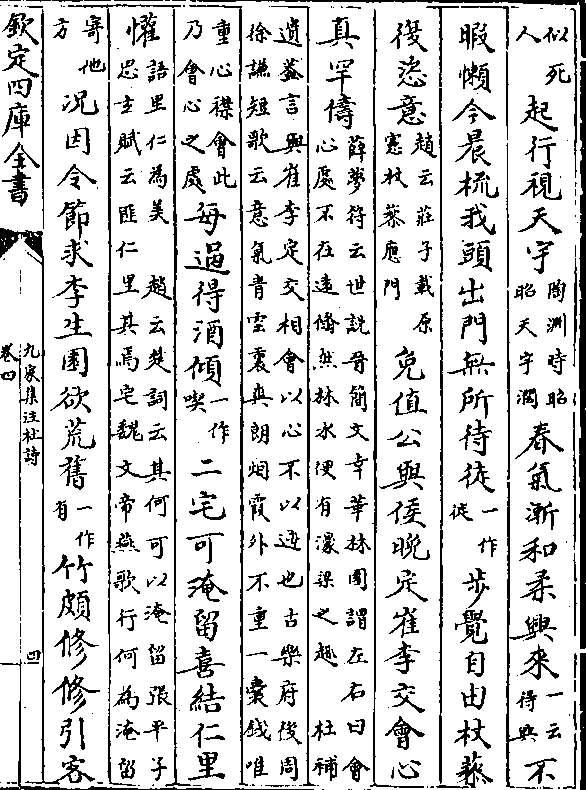 似死人起行視天宇陶淵時昭昭天宇濶春氣漸和柔興來一云得興不
暇懶今晨梳我頭出門無所待徒一作徙步覺自由杖藜
復恣意趙云莊子載原憲杖藜應門免值公與侯晚定崔李交會心
真罕儔薛夢符云世説晉簡文幸華林園謂左右曰會心處不在遠翛然林水便有濠梁之趣杜補
遺蓋言與崔李定交相會以心不以迹也古樂府後周徐謙短歌云意氣青雲裏爽朗烟霞外不重一囊錢唯
重心襟會此乃會心之處每過得酒傾一作喫二宅可淹留喜結仁里
懽語里仁為美趙云楚詞云其何可以淹留張平子思𤣥賦云匪仁里其焉宅魏文帝燕歌行何為淹留
寄他方况因令節求李生園欲荒舊一作有竹頗修修引客
欽定四庫全書
九家集注杜詩
卷四
四